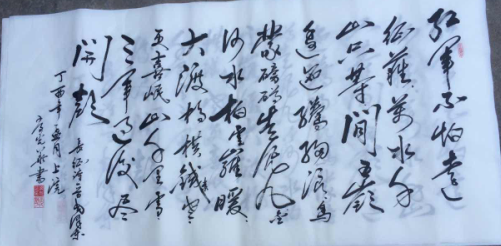 紅軍不怕遠
征難萬水千
山只等閒五嶺
逶迤騰細浪烏
蒙磅礴走泥丸金
沙水拍雲崖暖
大渡橋橫鐵索寒
更喜岷山千里雪
三軍過後盡
開顏
丁酉年五月上浣
書